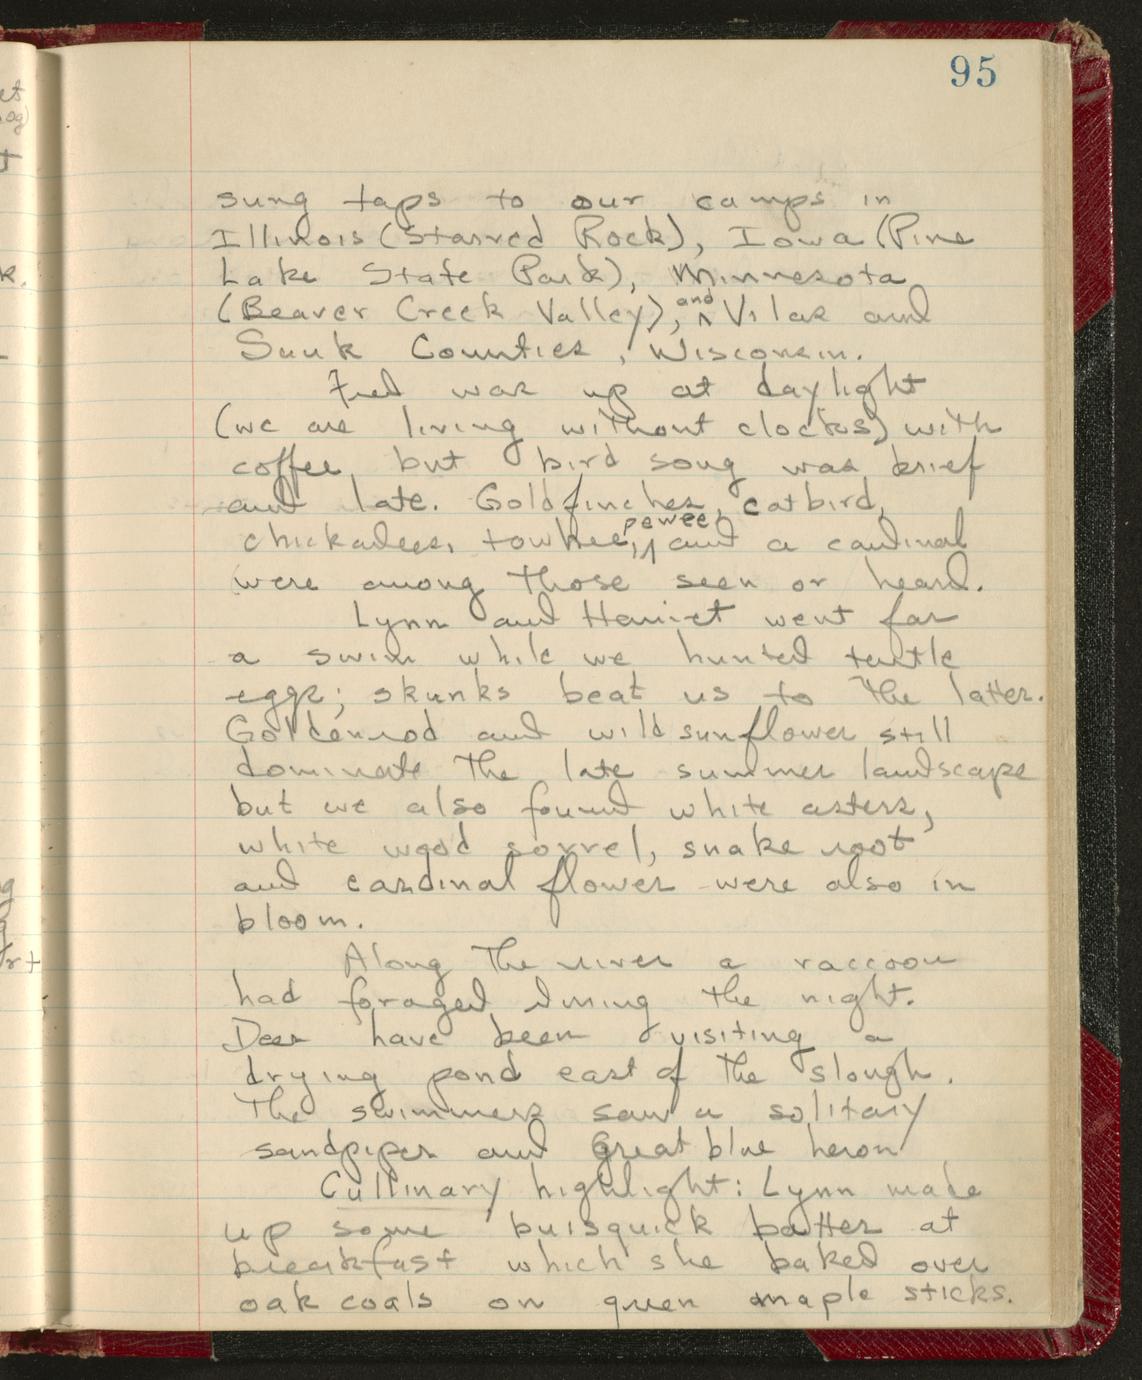 95
sung taps to our camps in
Illinois (Starved Rock), Iowa (Pine
Lake State Park), Minnesota
(Beaver Creek Valley), and Vilas and
Sauk Counties, Wisconsin.
Fred was up at daylight
(we are living without clocks) with
coffee, but bird song was brief
and late. Goldfinches, catbird,
chickadees, towhee, pewee, and a cardinal
were among those seen or heard.
Lynn and Harriet went for
a swim while we hunted turtle
eggs; skunks beat us to the latter.
Goldenrod and wild sunflower still
dominate the late summer landscape
but we also found white asters,
white wood sorrel, snake root
and cardinal flower were also in
bloom.
Along the river a raccoon
had foraged during the night.
Deer have been visiting a
drying pond east of the slough.
The swimmers saw a solitary
sandpiper and Great blue heron
Cullinary highlight: Lynn made
up some buisquick batter at
breakfast which she baked over
oak coals on green maple sticks.